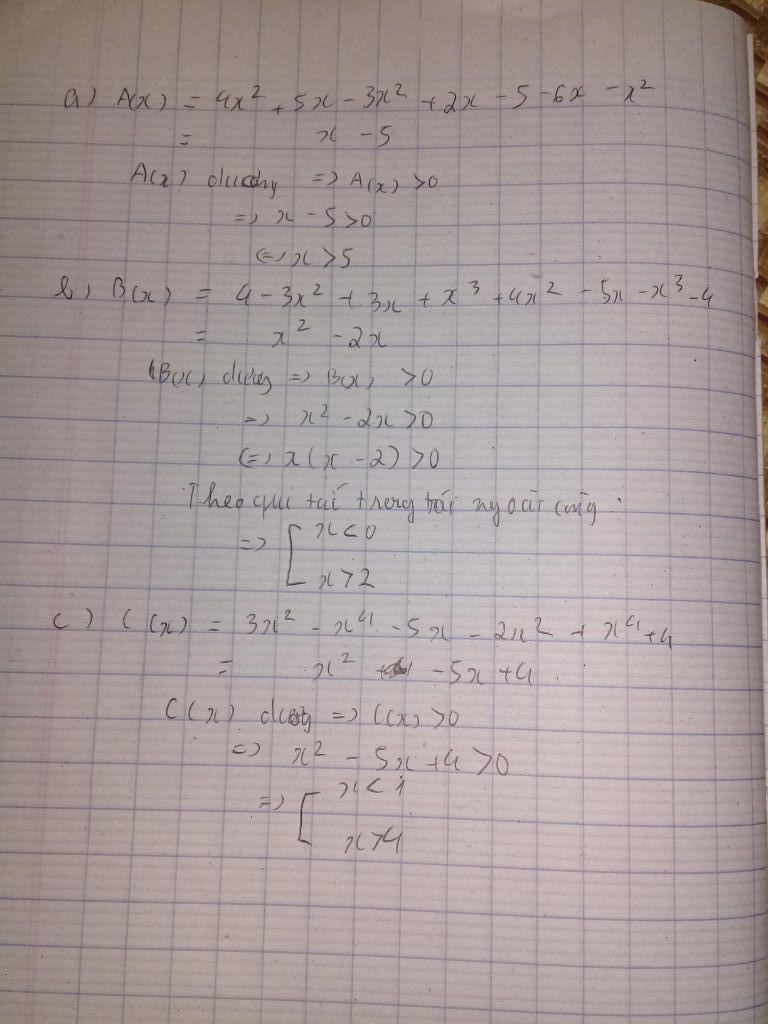 a) A(x) = 4x² + 5x - 3x² + 2x - 5 - 6x - x²
= x - 5
A(x) dương => A(x) > 0
=> x - 5 > 0
<=> x > 5
b) B(x) = 4 - 3x² + 3x + x³ + 4x² - 5x - x³ - 4
= x² - 2x
B(x) dương => B(x) > 0
=> x² - 2x > 0
<=> x(x - 2) > 0
Theo qui tắc trong trái ngoài cùng :
=> [ x < 0
x > 2
c) C(x) = 3x² - x⁴ - 5x - 2x² + x⁴ + 4
= x² - 5x + 4
C(x) dương => C(x) > 0
=> x² - 5x + 4 > 0
=> [ x < 1
x > 4